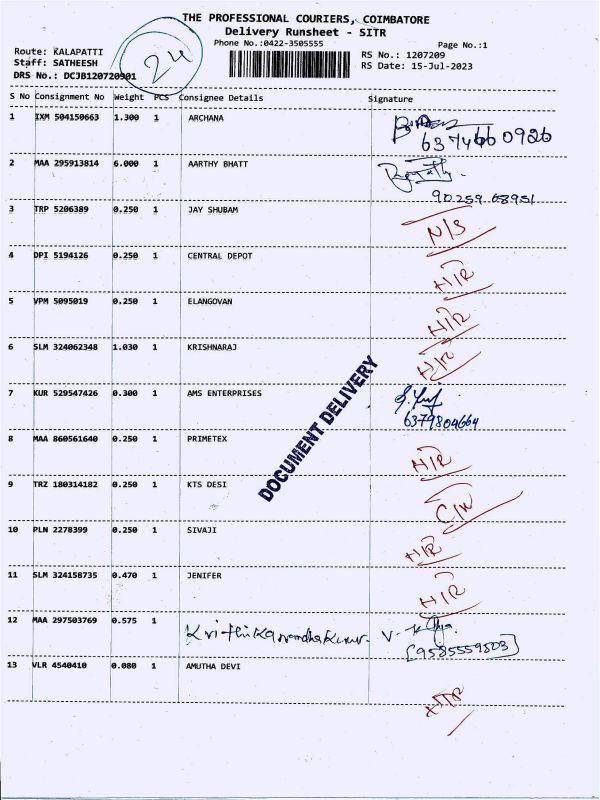 THE PROFESSIONAL COURIERS, COIMBATORE
Delivery Runsheet - SITR
Phone No.:0422-3505555
Page No.:1
Route: KALAPATTI
Staff: SATHEESH
DRS No.: DCJB120720901
24
RS No.: 1207209
RS Date: 15-Jul-2023
S No Consignment No Weight PCS Consignee Details Signature
1 IXM 504150663 1.300 1 ARCHANA
6374660926
2 MAA 295913814 6.000 1 AARTHY BHATT
90259 08951
3 TRP 5206389 0.250 1 JAY SHUBAM N/S
4 DPI 5194126 0.250 1 CENTRAL DEPOT H/R
5 VPM 5095019 0.250 1 ELANGOVAN H/R
6 SLM 324062348 1.030 1 KRISHNARAJ H/R
7 KUR 529547426 0.300 1 AMS ENTERPRISES
6379804664
DOCUMENT DELIVERY
8 MAA 860561640 0.250 1 PRIMETEX H/R
9 TRZ 180314182 0.250 1 KTS DESI
10 PLN 2278399 0.250 1 SIVAJI H/R
11 SLM 324158735 0.470 1 JENIFER H/R
12 MAA 297503769 0.575 1
[9585559503]
13 VLR 4540410 0.080 1 AMUTHA DEVI H/R